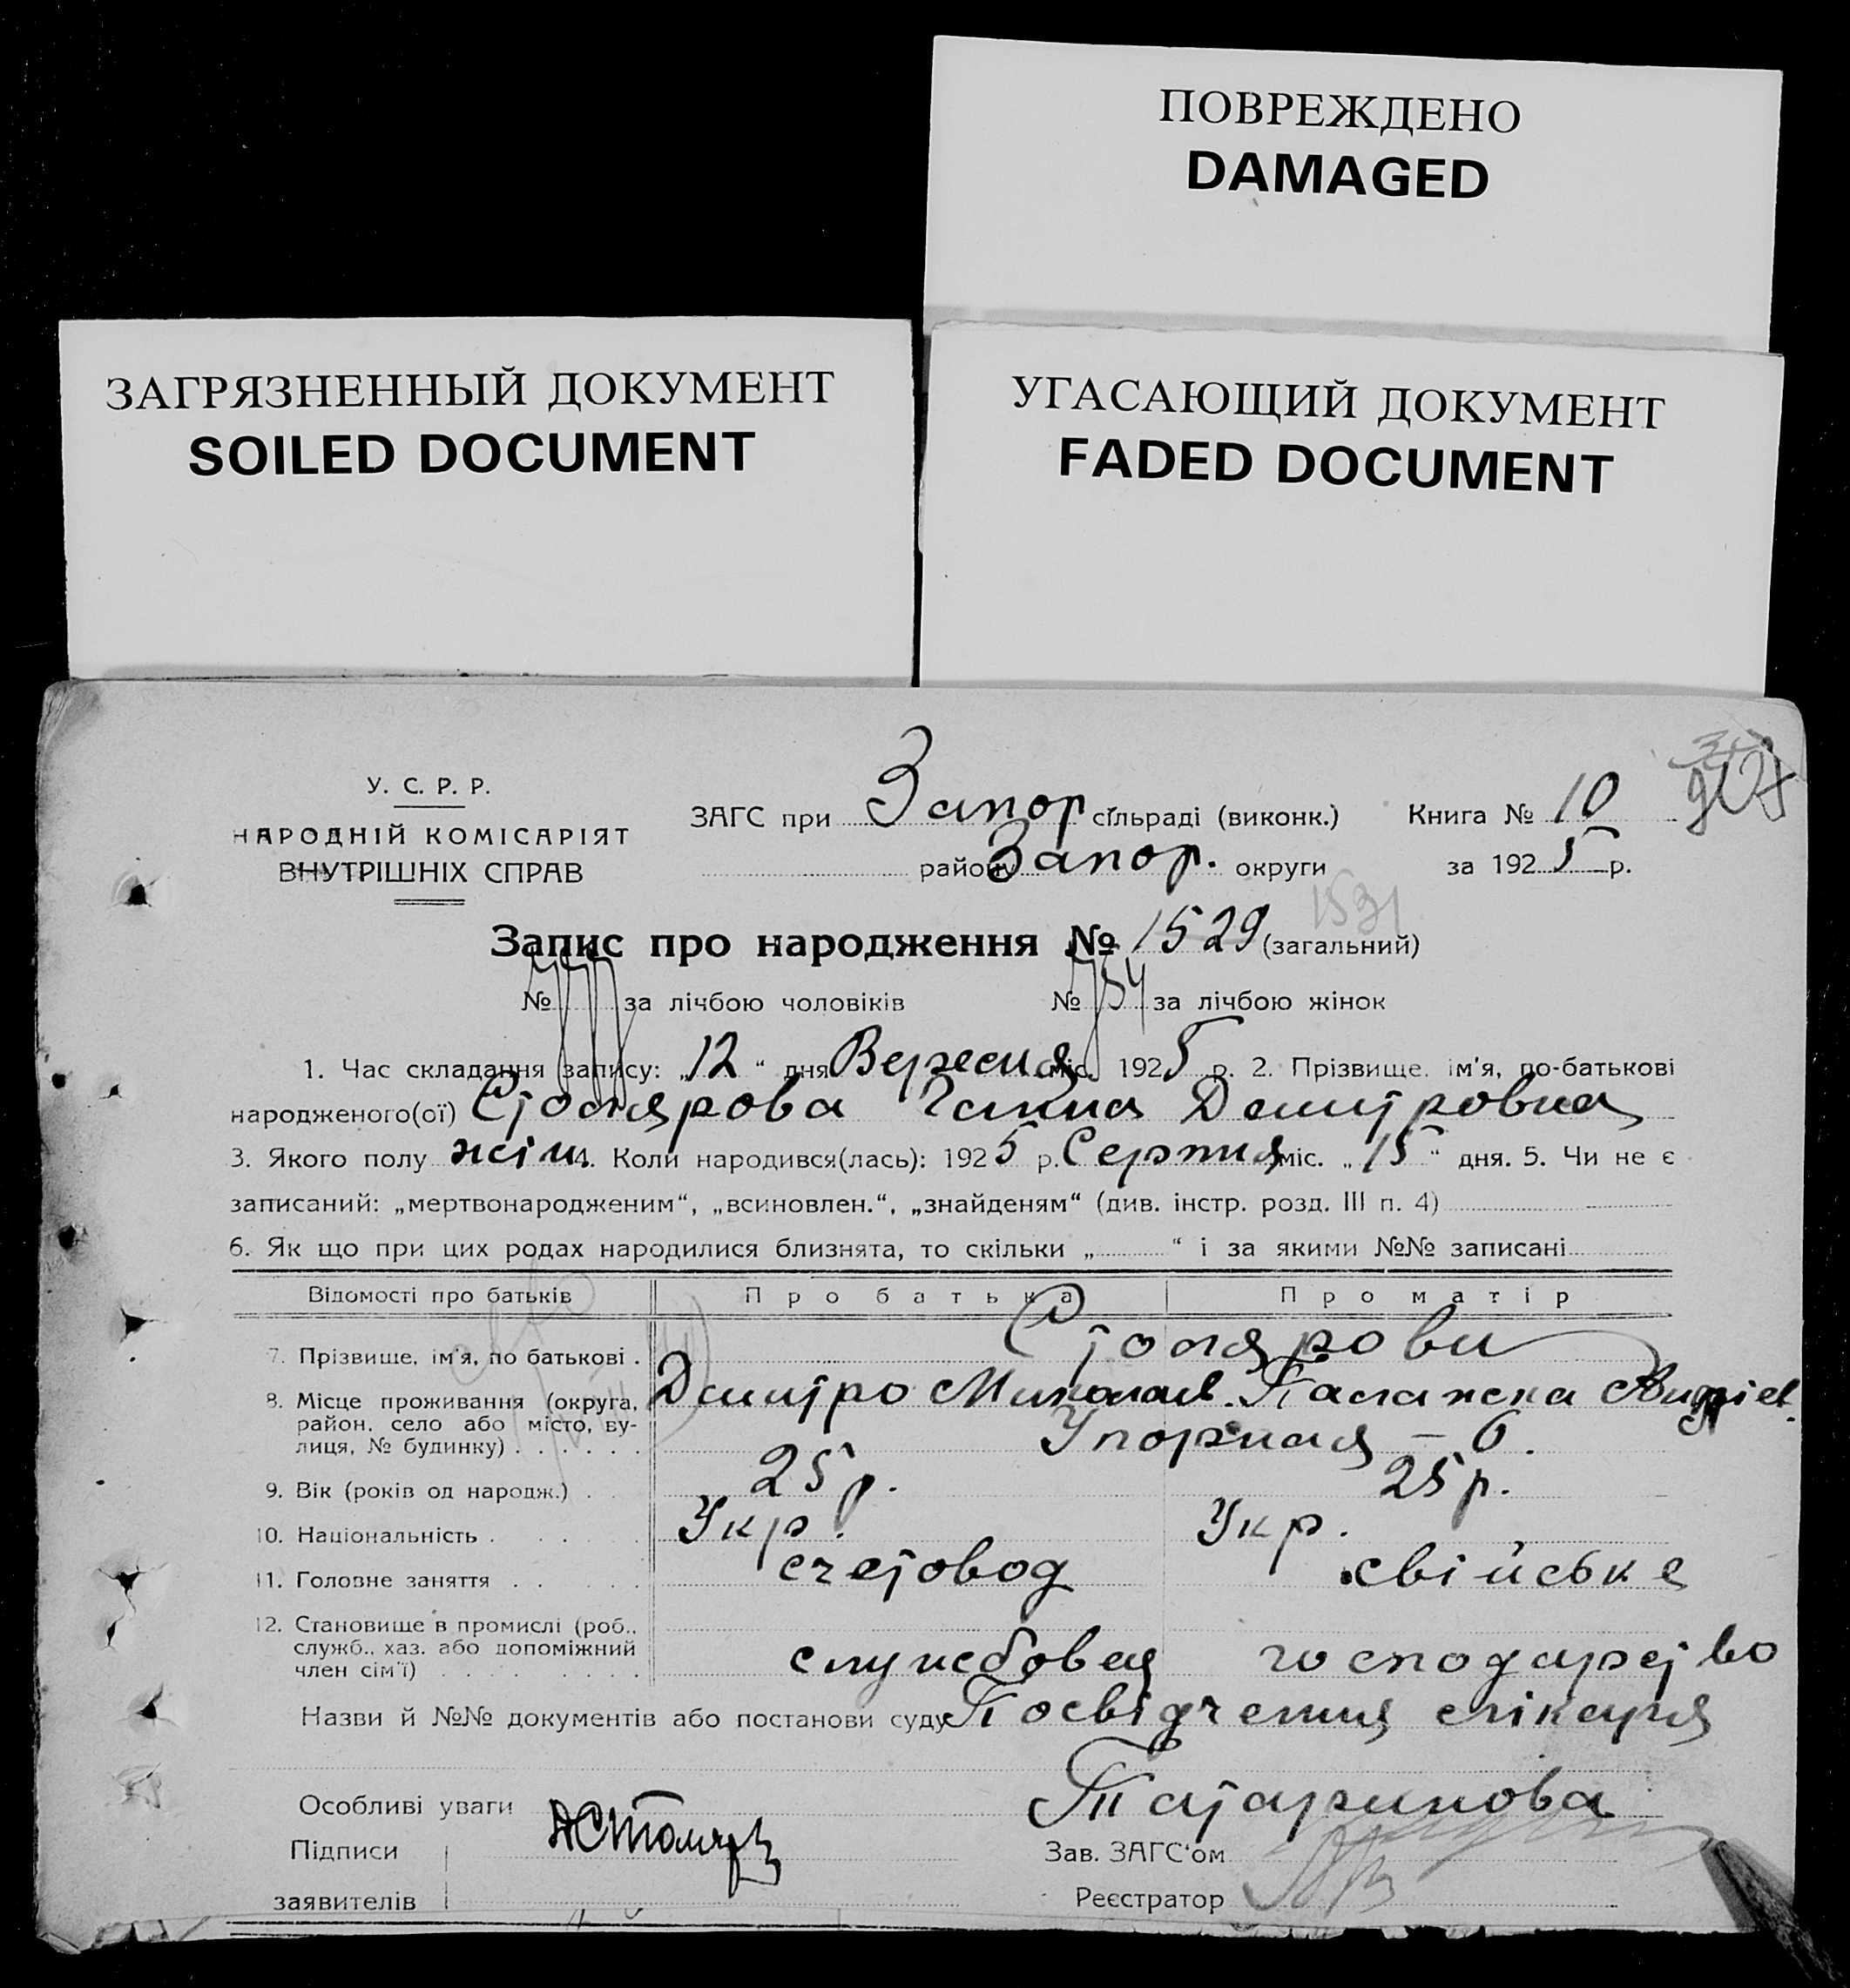 ПОВРЕЖДЕНО
DAMAGED
ЗАГРЯЗНЕННЫЙ ДОКУМЕНТ
SOILED DOCUMENT
УГАСАЮЩИЙ ДОКУМЕНТ
FADED DOCUMENT
У. С. Р. Р.
НАРОДНІЙ КОМІСАРІЯТ
ВНУТРІШНІХ СПРАВ
ЗАГС при Запор сільраді (виконк.) Книга № 10
району Запор. округи за 1925 р.
1531
Запис про народження № 1529 (загальний)
№ за лічбою чоловіків № 754 за лічбою жінок
1. Час складання запису: „12“ дня Вересня міс. 1925 р. 2. Прізвище, ім'я, по-батькові
народженого(ої) Столярова Галина Дмитровна
3. Якого полу жін. 4. Коли народився(лась): 1925 р. Серпня міс. „15“ дня. 5. Чи не є
записаний: „мертвонародженим“, „всиновлен.“, „знайденям“ (див. інстр. розд. III п. 4)
6. Як що при цих родах народилися близнята, то скільки „ “ і за якими №№ записані
Відомості про батьків Про батька Про матір
7. Прізвище, ім'я, по батькові . Столярови
Дмитро Миколаїв. Палажка Андрієв.
8. Місце проживання (округа, район, село або місто, вулиця, № будинку) . . . . . . Упорная – 6.
9. Вік (років од народж.) . 25 р. 25 р.
10. Національність . Укр. Укр.
11. Головне заняття . . счетовод свійське
12. Становище в промислі (роб., служб., хаз. або допоміжний член сім'ї) службовец господарство
Назви й №№ документів або постанови суду Посвідчення лікаря
Татаринова
Особливі уваги
Підписи ДСтоляр
заявителів
Зав. ЗАГС'ом
Реєстратор